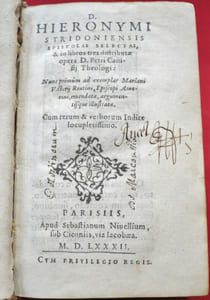 D.
HIERONYMI
STRIDONIENSIS
EPISTOLAE SELECTAE,
& in libros tres distributæ
opera D. Petri Cani-
sij Theologi:
Nunc primùm ad exemplar Mariani
Victorij Reatini, Episcopi Ame-
rini, emendatæ, argumen-
tisque illustratæ.
Cum rerum & verborum Indice
locupletissimo.
PARISIIS,
Apud Sebastianum Nivellium,
sub Ciconiis, via Iacobæa.
M. D. LXXXII.
CVM PRIVILEGIO REGIS.